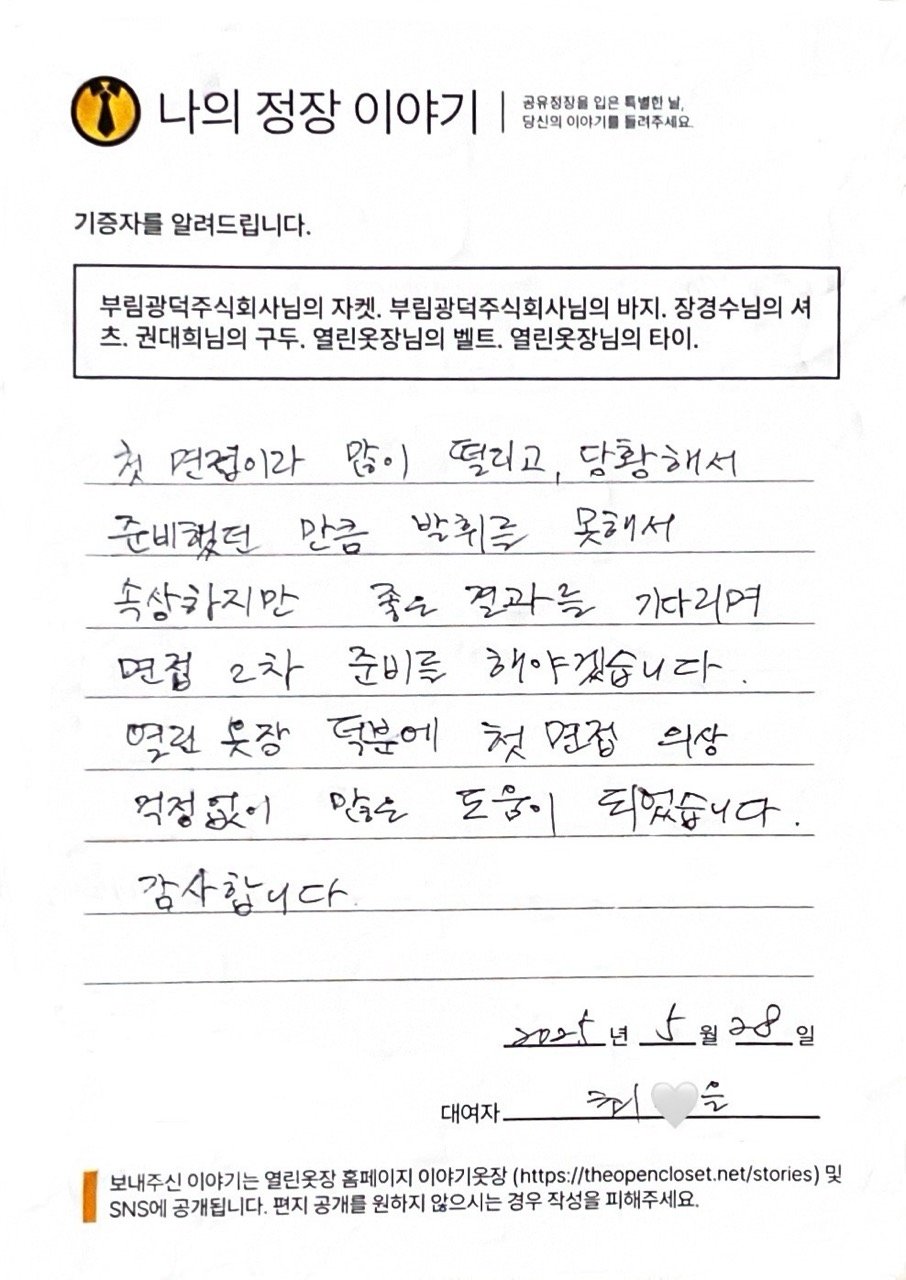 나의 정장 이야기
공유정장을 입은 특별한 날,
당신의 이야기를 들려주세요.
기증자를 알려드립니다.
부림광덕주식회사님의 자켓. 부림광덕주식회사님의 바지. 장경수님의 셔
츠. 권대희님의 구두. 열린옷장님의 벨트. 열린옷장님의 타이.
첫 면접이라 많이 떨리고, 당황해서
준비했던 만큼 발휘를 못해서
속상하지만 좋은 결과를 기다리며
면접 2차 준비를 해야겠습니다.
열린 옷장 덕분에 첫 면접 의상
걱정없이 많은 도움이 되었습니다.
감사합니다.
2025년 5월 28일
대여자
보내주신 이야기는 열린옷장 홈페이지 이야기옷장 (https://theopencloset.net/stories) 및
SNS에 공개됩니다. 편지 공개를 원하지 않으시는 경우 작성을 피해주세요.